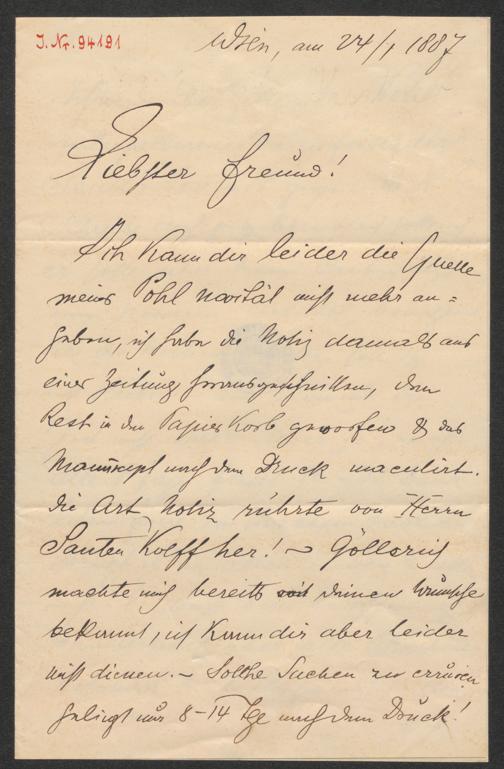 J. Nr. 94191
Wien, am 24/1 1887
Liebster Freund!
Ich kann dir leider die Quelle
meines Pohl novität nicht mehr an=
geben, ich habe die Notiz damals aus
einer Zeitung herausgeschnitten, den
Rest in den Papier Korb geworfen & das
Manuscript nach dem Druck maculirt.
Die Art Notiz rührte von Herrn
Santen Kolff her! – Göllerich
machte mich bereits mit deinem Wunsche
bekannt, ich kann dir aber leider
nicht dienen. – Solche Sachen zu eruiren
gelingt nur 8–14 Tge nach dem Druck!